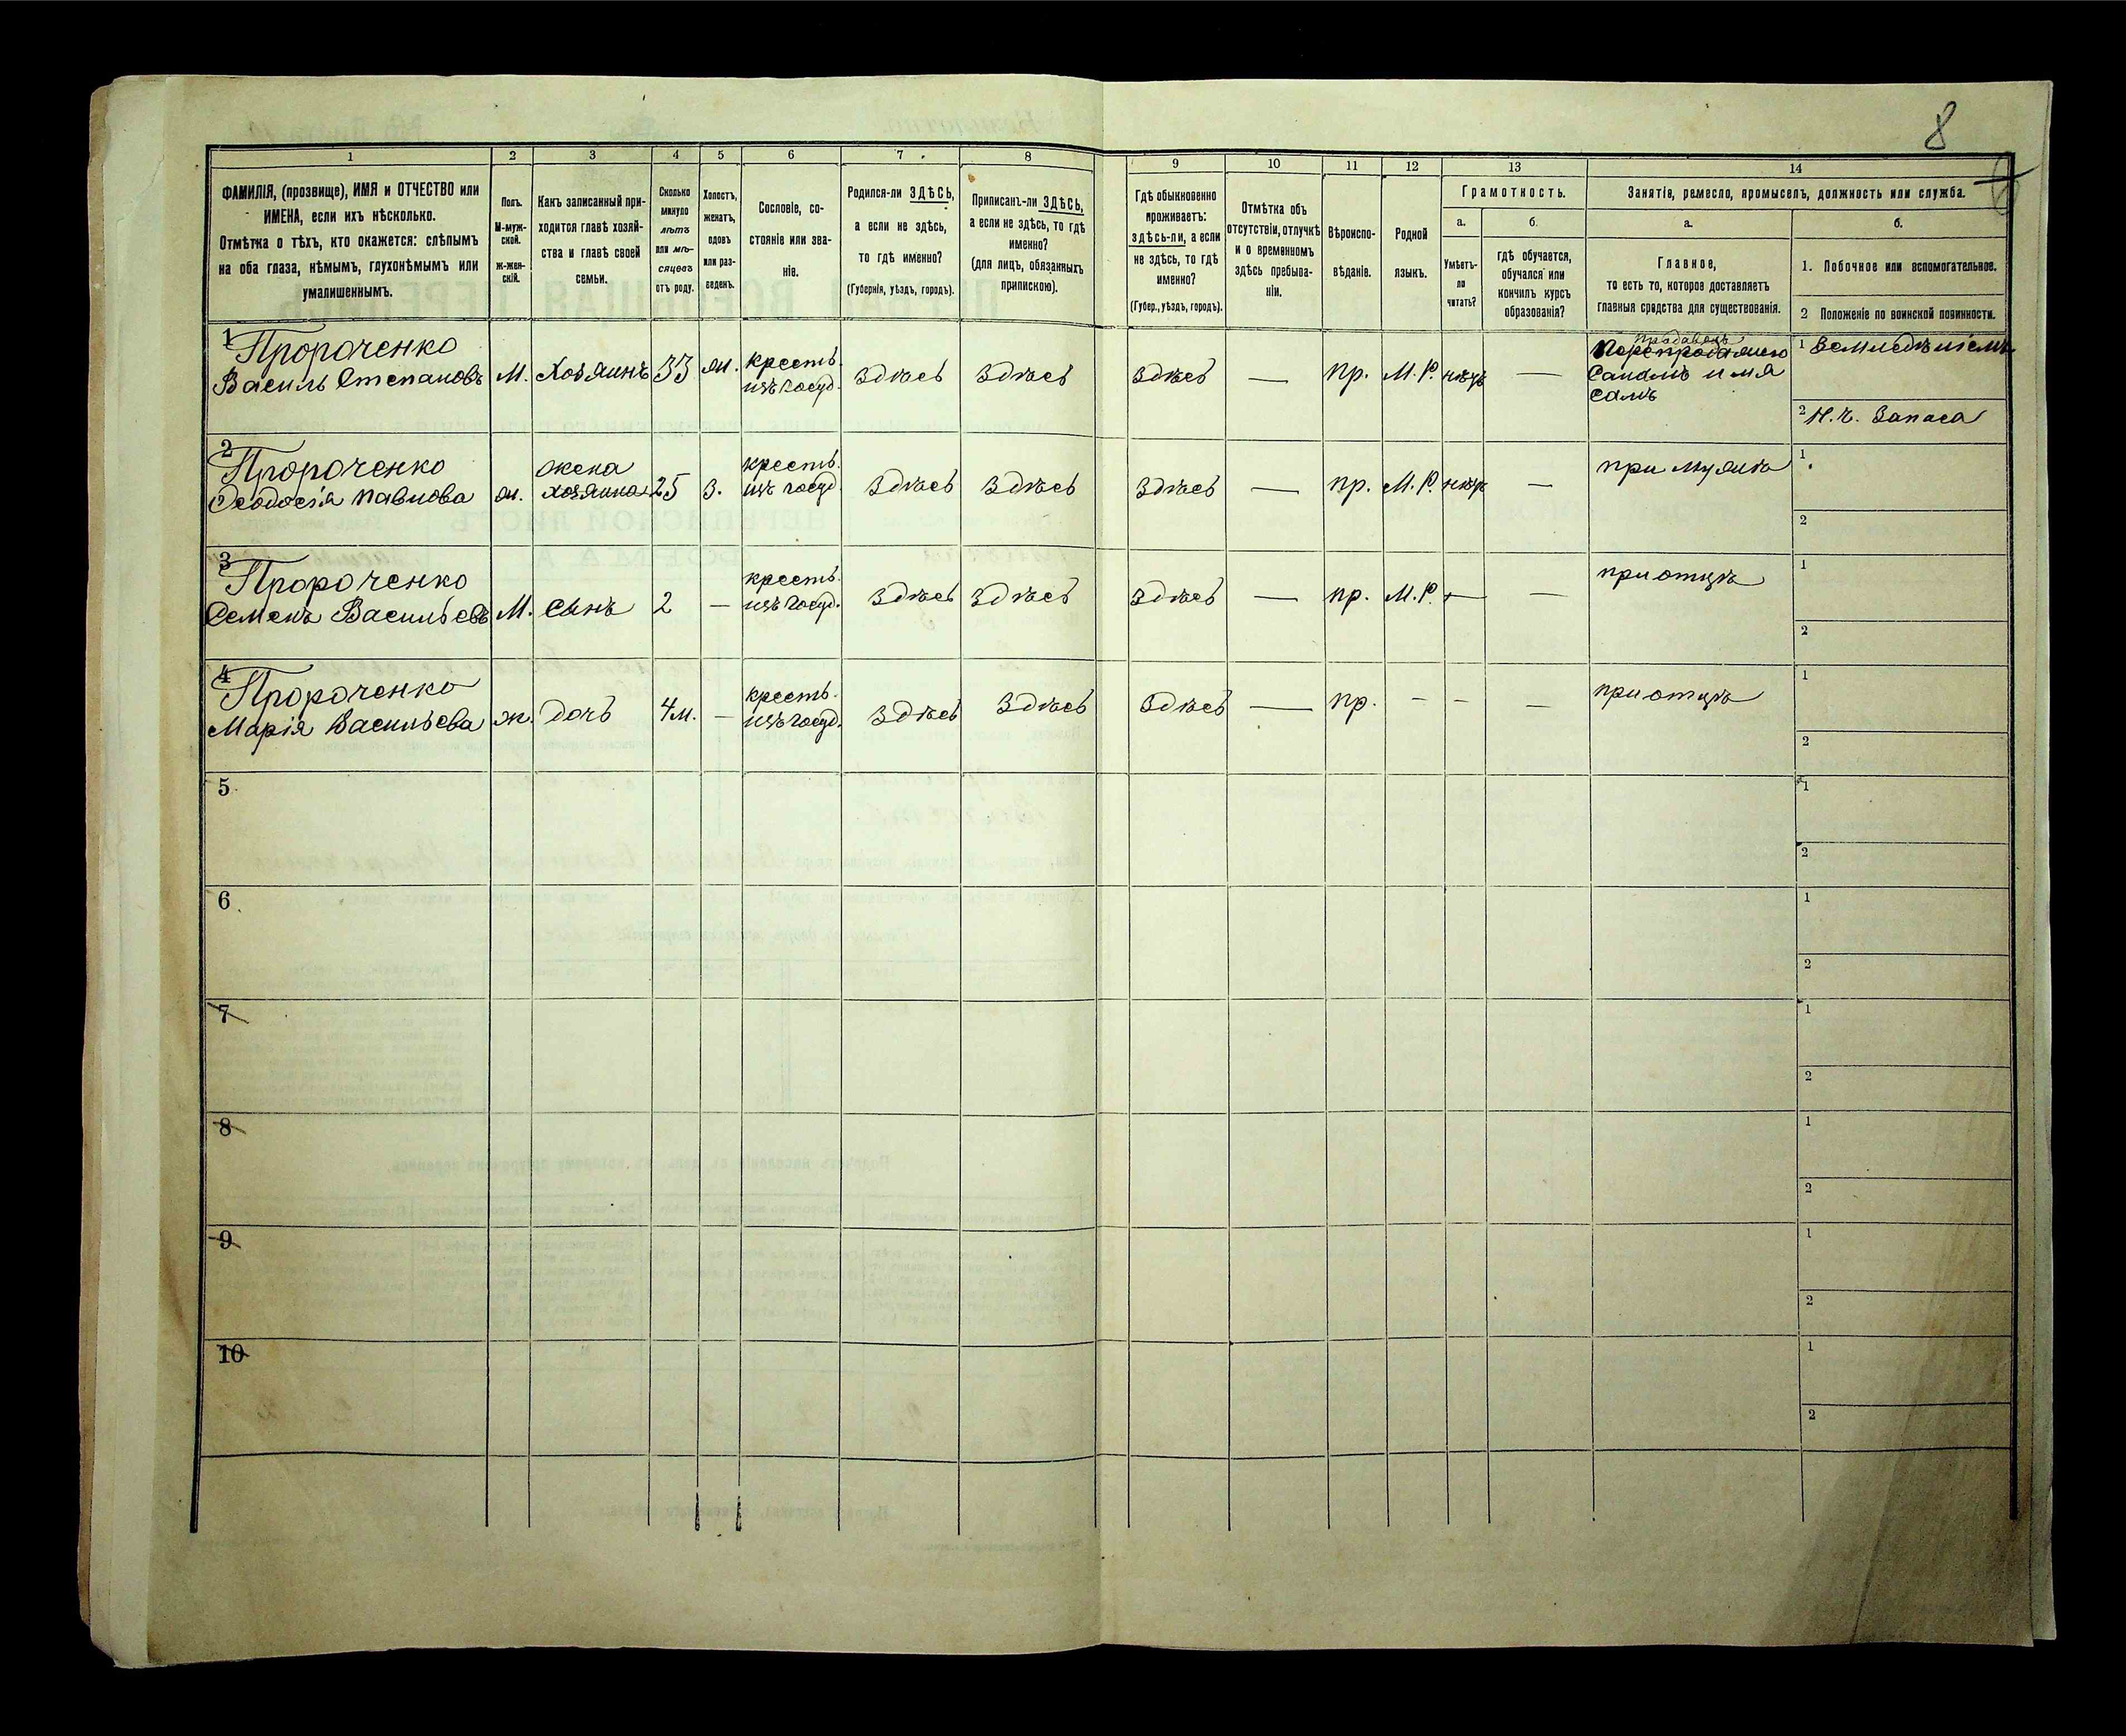 8
1 2 3 4 5 6 7 8 9 10 11 12 13 14
ФАМИЛІЯ, (прозвище), ИМЯ и ОТЧЕСТВО или
ИМЕНА, если ихъ нѣсколько.
Отмѣтка о тѣхъ, кто окажется: слѣпымъ
на оба глаза, нѣмымъ, глухонѣмымъ или
умалишеннымъ.
Полъ.
М-муж-
ской.
Ж-жен-
скій.
Какъ записанный при-
ходится главѣ хозяй-
ства и главѣ своей
семьи.
Сколько
минуло
лѣтъ
или мѣ-
сяцевъ
отъ роду.
Холостъ,
женатъ,
вдовъ
или раз-
веденъ.
Сословіе, со-
стояніе или зва-
ніе.
Родился-ли ЗДѢСЬ,
а если не здѣсь,
то гдѣ именно?
(Губернія, уѣздъ, городъ).
Приписанъ-ли ЗДѢСЬ,
а если не здѣсь, то гдѣ
именно?
(для лицъ, обязанныхъ
припискою).
Гдѣ обыкновенно
проживаетъ:
здѣсь-ли, а если
не здѣсь, то гдѣ
именно?
(Губер., уѣздъ, городъ).
Отмѣтка объ
отсутствіи, отлучкѣ
и о временномъ
здѣсь пребыва-
ніи.
Вѣроиспо-
вѣданіе.
Родной
языкъ.
Грамотность.
а.
Умѣетъ-
ли
читать?
б.
гдѣ обучается,
обучался или
кончилъ курсъ
образованія?
Занятія, ремесло, промыселъ, должность или служба.
а.
Главное,
то есть то, которое доставляетъ
главныя средства для существованія.
б.
1. Побочное или вспомогательное.
2 Положеніе по воинской повинности.
1
Пророченко
Василь Степановъ М. Хозяинъ 33 ж. кресть. изъ госуд. здѣсь здѣсь здѣсь — пр. М.Р. нѣтъ —
1 Земледѣліемъ
2 Н.ч. Запаса
2
Пророченко
Феодосія Павлова ж. жена хозяина 25 з. кресть. изъ госуд. здѣсь здѣсь здѣсь — пр. М.Р. нѣтъ — при мужѣ
1
2
3
Пророченко
Семенъ Васильевъ М. сынъ 2 — кресть. изъ госуд. здѣсь здѣсь здѣсь — пр. М.Р. — — при отцѣ
1
2
4
Пророченко
Марія Васильева ж. дочь 4м. — кресть. изъ госуд. здѣсь здѣсь здѣсь — пр. — — — при отцѣ
1
2
5
1
2
6
1
2
7
1
2
8
1
2
9
1
2
10
1
2